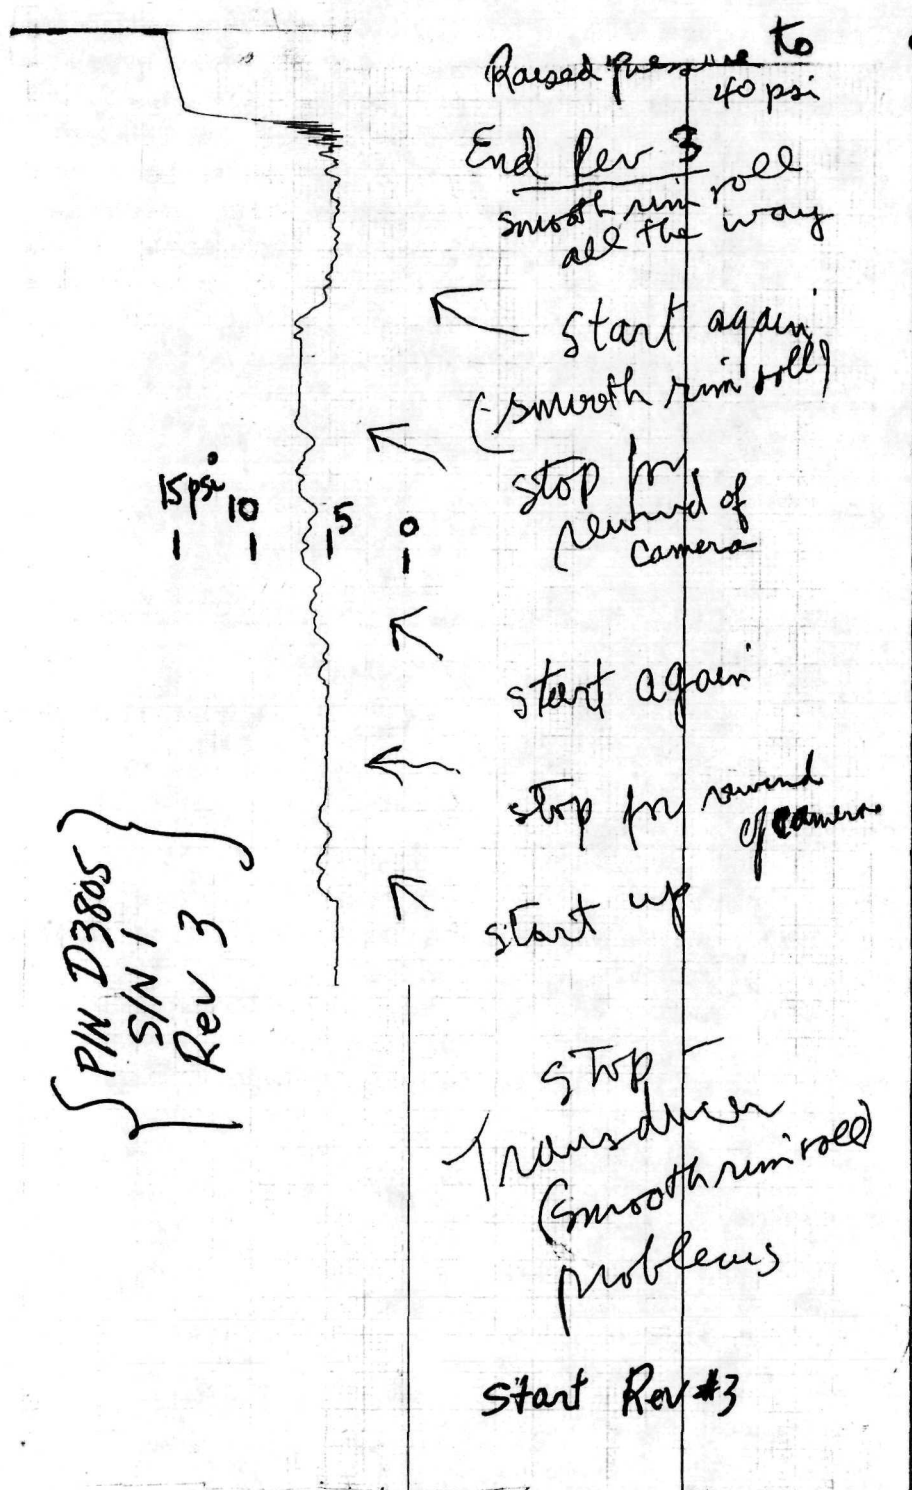 Raised pressure to
40 psi
End Rev 3
smooth rim roll
all the way
start again
(smooth rim roll)
stop for
rewind of
camera
15 psi 10 5 0
start again
stop for rewind
of camera
start up
P/N D3805
S/N 1
Rev 3
stop -
Transducer
(smooth rim roll)
problems
Start Rev #3